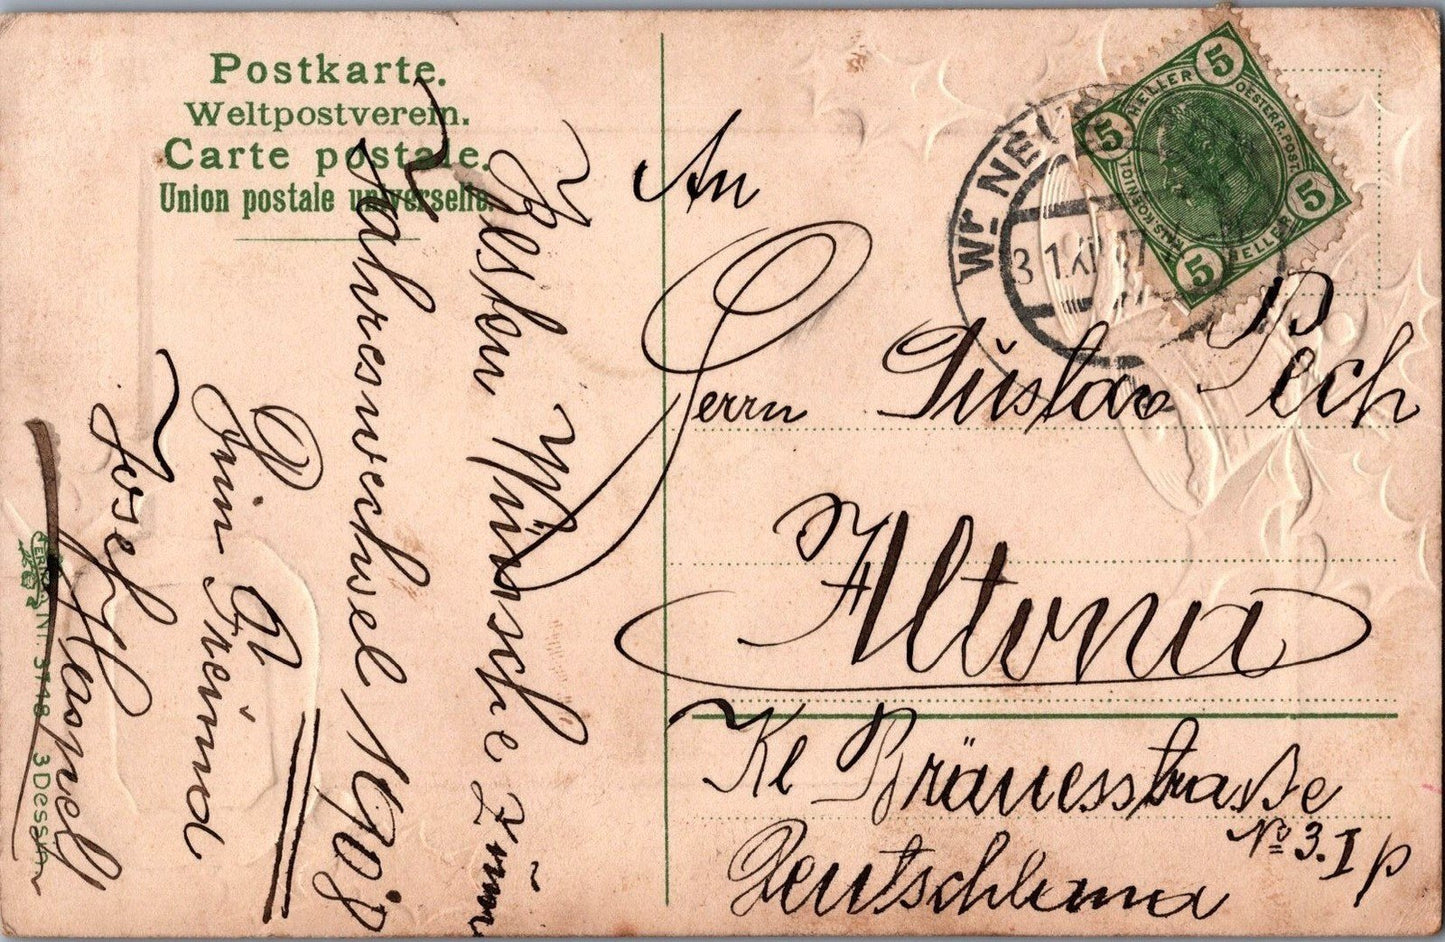 Postkarte.
Weltpostverein.
Carte postale.
Union postale universelle.
Besten Wünsche zum
Jahreswechsel 1908
Dein Freund
Josef Haspel
An
Herrn Gustav Pech
Altona
Kl Bräuesstraße
No 3. I p
Deutschland
Wr. NEU
31 XI
5 HELLER 5
OESTERR. POST.
5 HELLER 5
KAIS. KOENIGL.
SER. Nr. 3748 3 Dessin